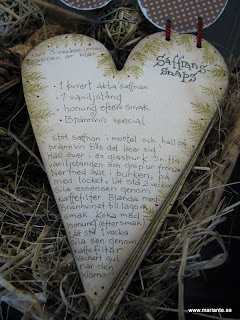 Saffrans
snaps
• 1 kuvert äkta saffran
• 1 vaniljstång
• honung efter smak
• Brännvin special
Stöt saffran i mortel och häll på
brännvin tills det löser sig.
Häll över i en glasburk. Snitta
vaniljstången och grop ur fröna.
Ner med allt i burken, på
med locket, låt stå 2 veckor
Sila essensen genom
kaffefilter. Blanda med
Brännvinet till lagom
smak. Koka med
honung efter smak
Låt stå 1 vecka
Sila sen genom
kaffefilter
vackert gul
när den
klarnar
www.mariante.se